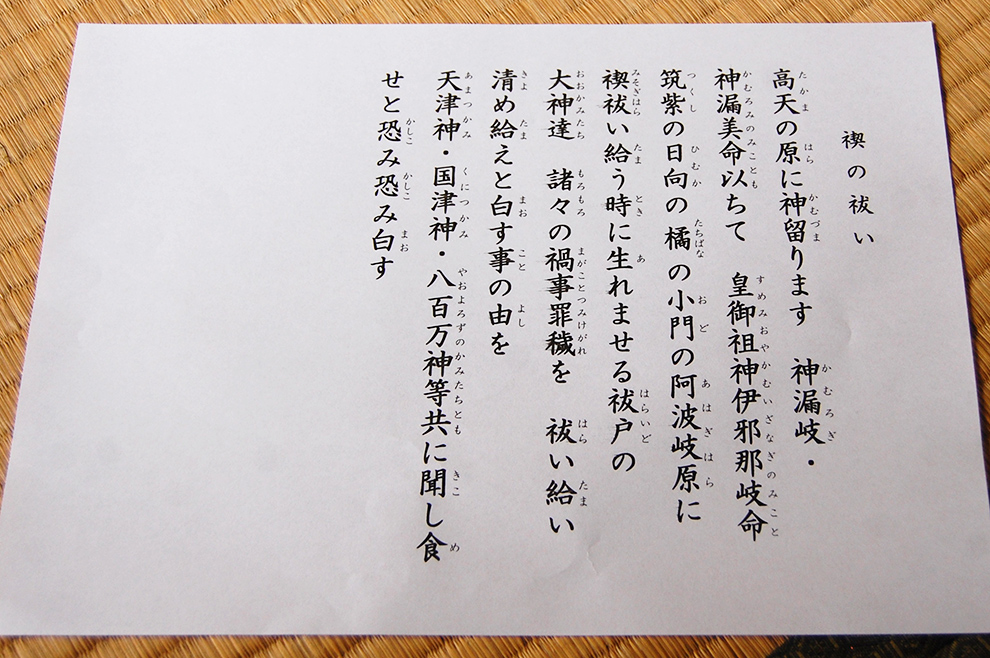 禊の祓い
高天の原に神留ります　神漏岐・
神漏美命以ちて　皇御祖神伊邪那岐命
筑紫の日向の橘の小門の阿波岐原に
禊祓い給う時に生れませる祓戸の
大神達　諸々の禍事罪穢を　祓い給い
清め給えと白す事の由を
天津神・国津神・八百万神等共に聞し食
せと恐み恐み白す